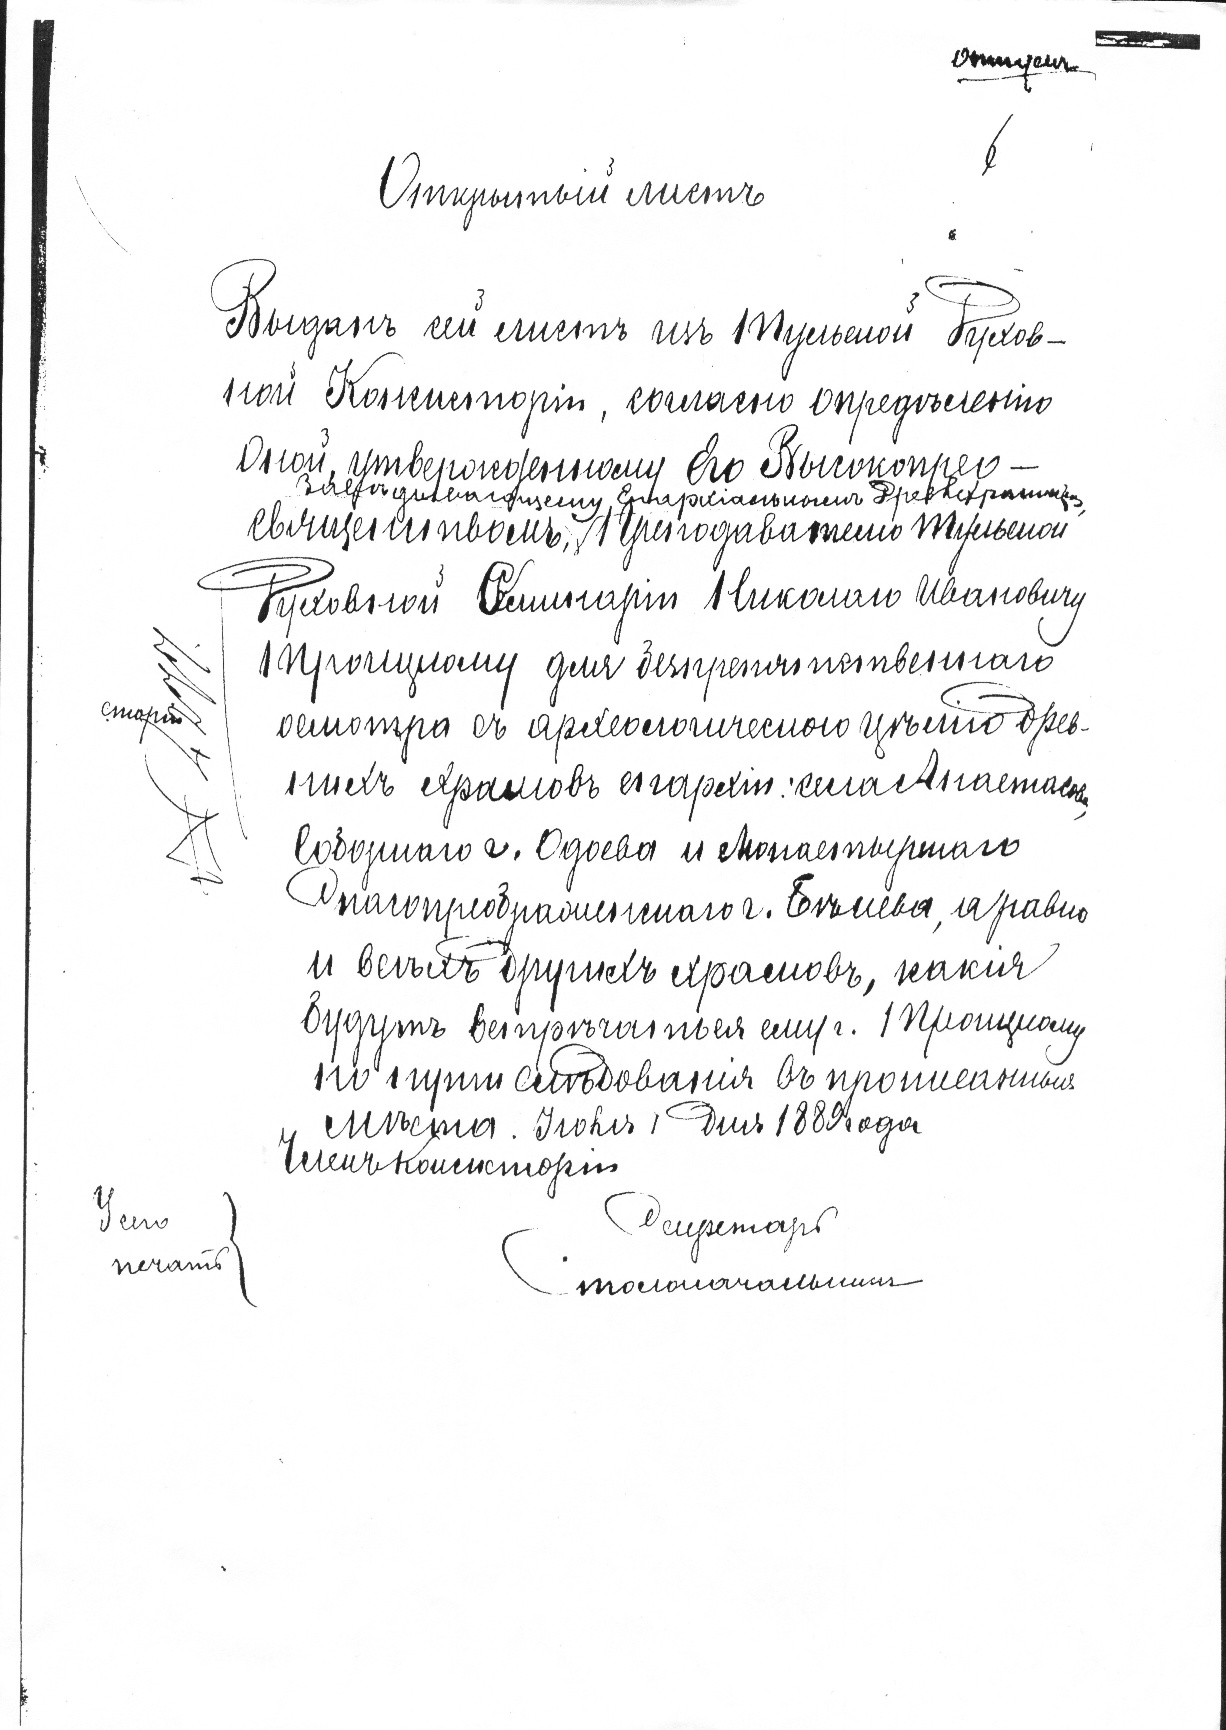 Отпускъ
6
Открытый листъ
Выданъ сей листъ изъ Тульской Духов-
ной Консисторіи, согласно опредѣленію
оной, утвержденному Его Высокопрео-
завѣдывающему Епархіальнымъ Древлехранилищ.,
священствомъ, Преподавателю Тульской
Духовной Семинаріи Николаю Ивановичу
Троицкому для безпрепятственнаго
осмотра съ археологическою цѣлію древ-
нихъ храмовъ епархіи: села Анастасова,
Соборнаго г. Одоева и Монастырскаго
Спасопреображенскаго г. Бѣлева, а равно
и всѣхъ другихъ храмовъ, какія
будутъ встрѣчаться ему г. Троицкому
по пути слѣдованія въ прописанныя
мѣста. Іюля 1 дня 1889 года
Членъ Консисторіи
Секретарь
Столоначальникъ
У сего
печать